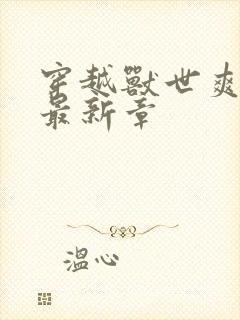 穿越獸世爽
最新章
溫心